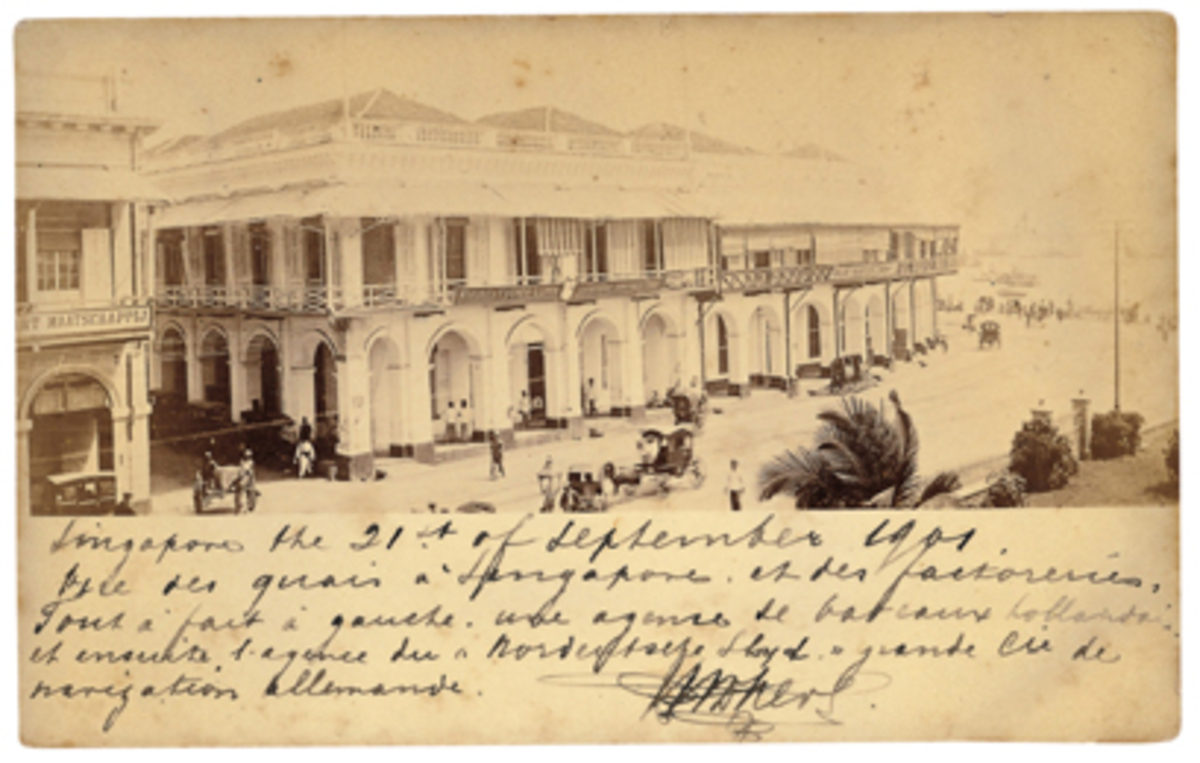 T MAATSCHAPPIJ
Singapore the 21st of September 1901.
Vue des quais à Singapore. et des factoreries.
Tout à fait à gauche. une agence de bateaux hollandai
et ensuite, l'agence du « Nordeutsche Lloyd » grande Cie de
navigation allemande.